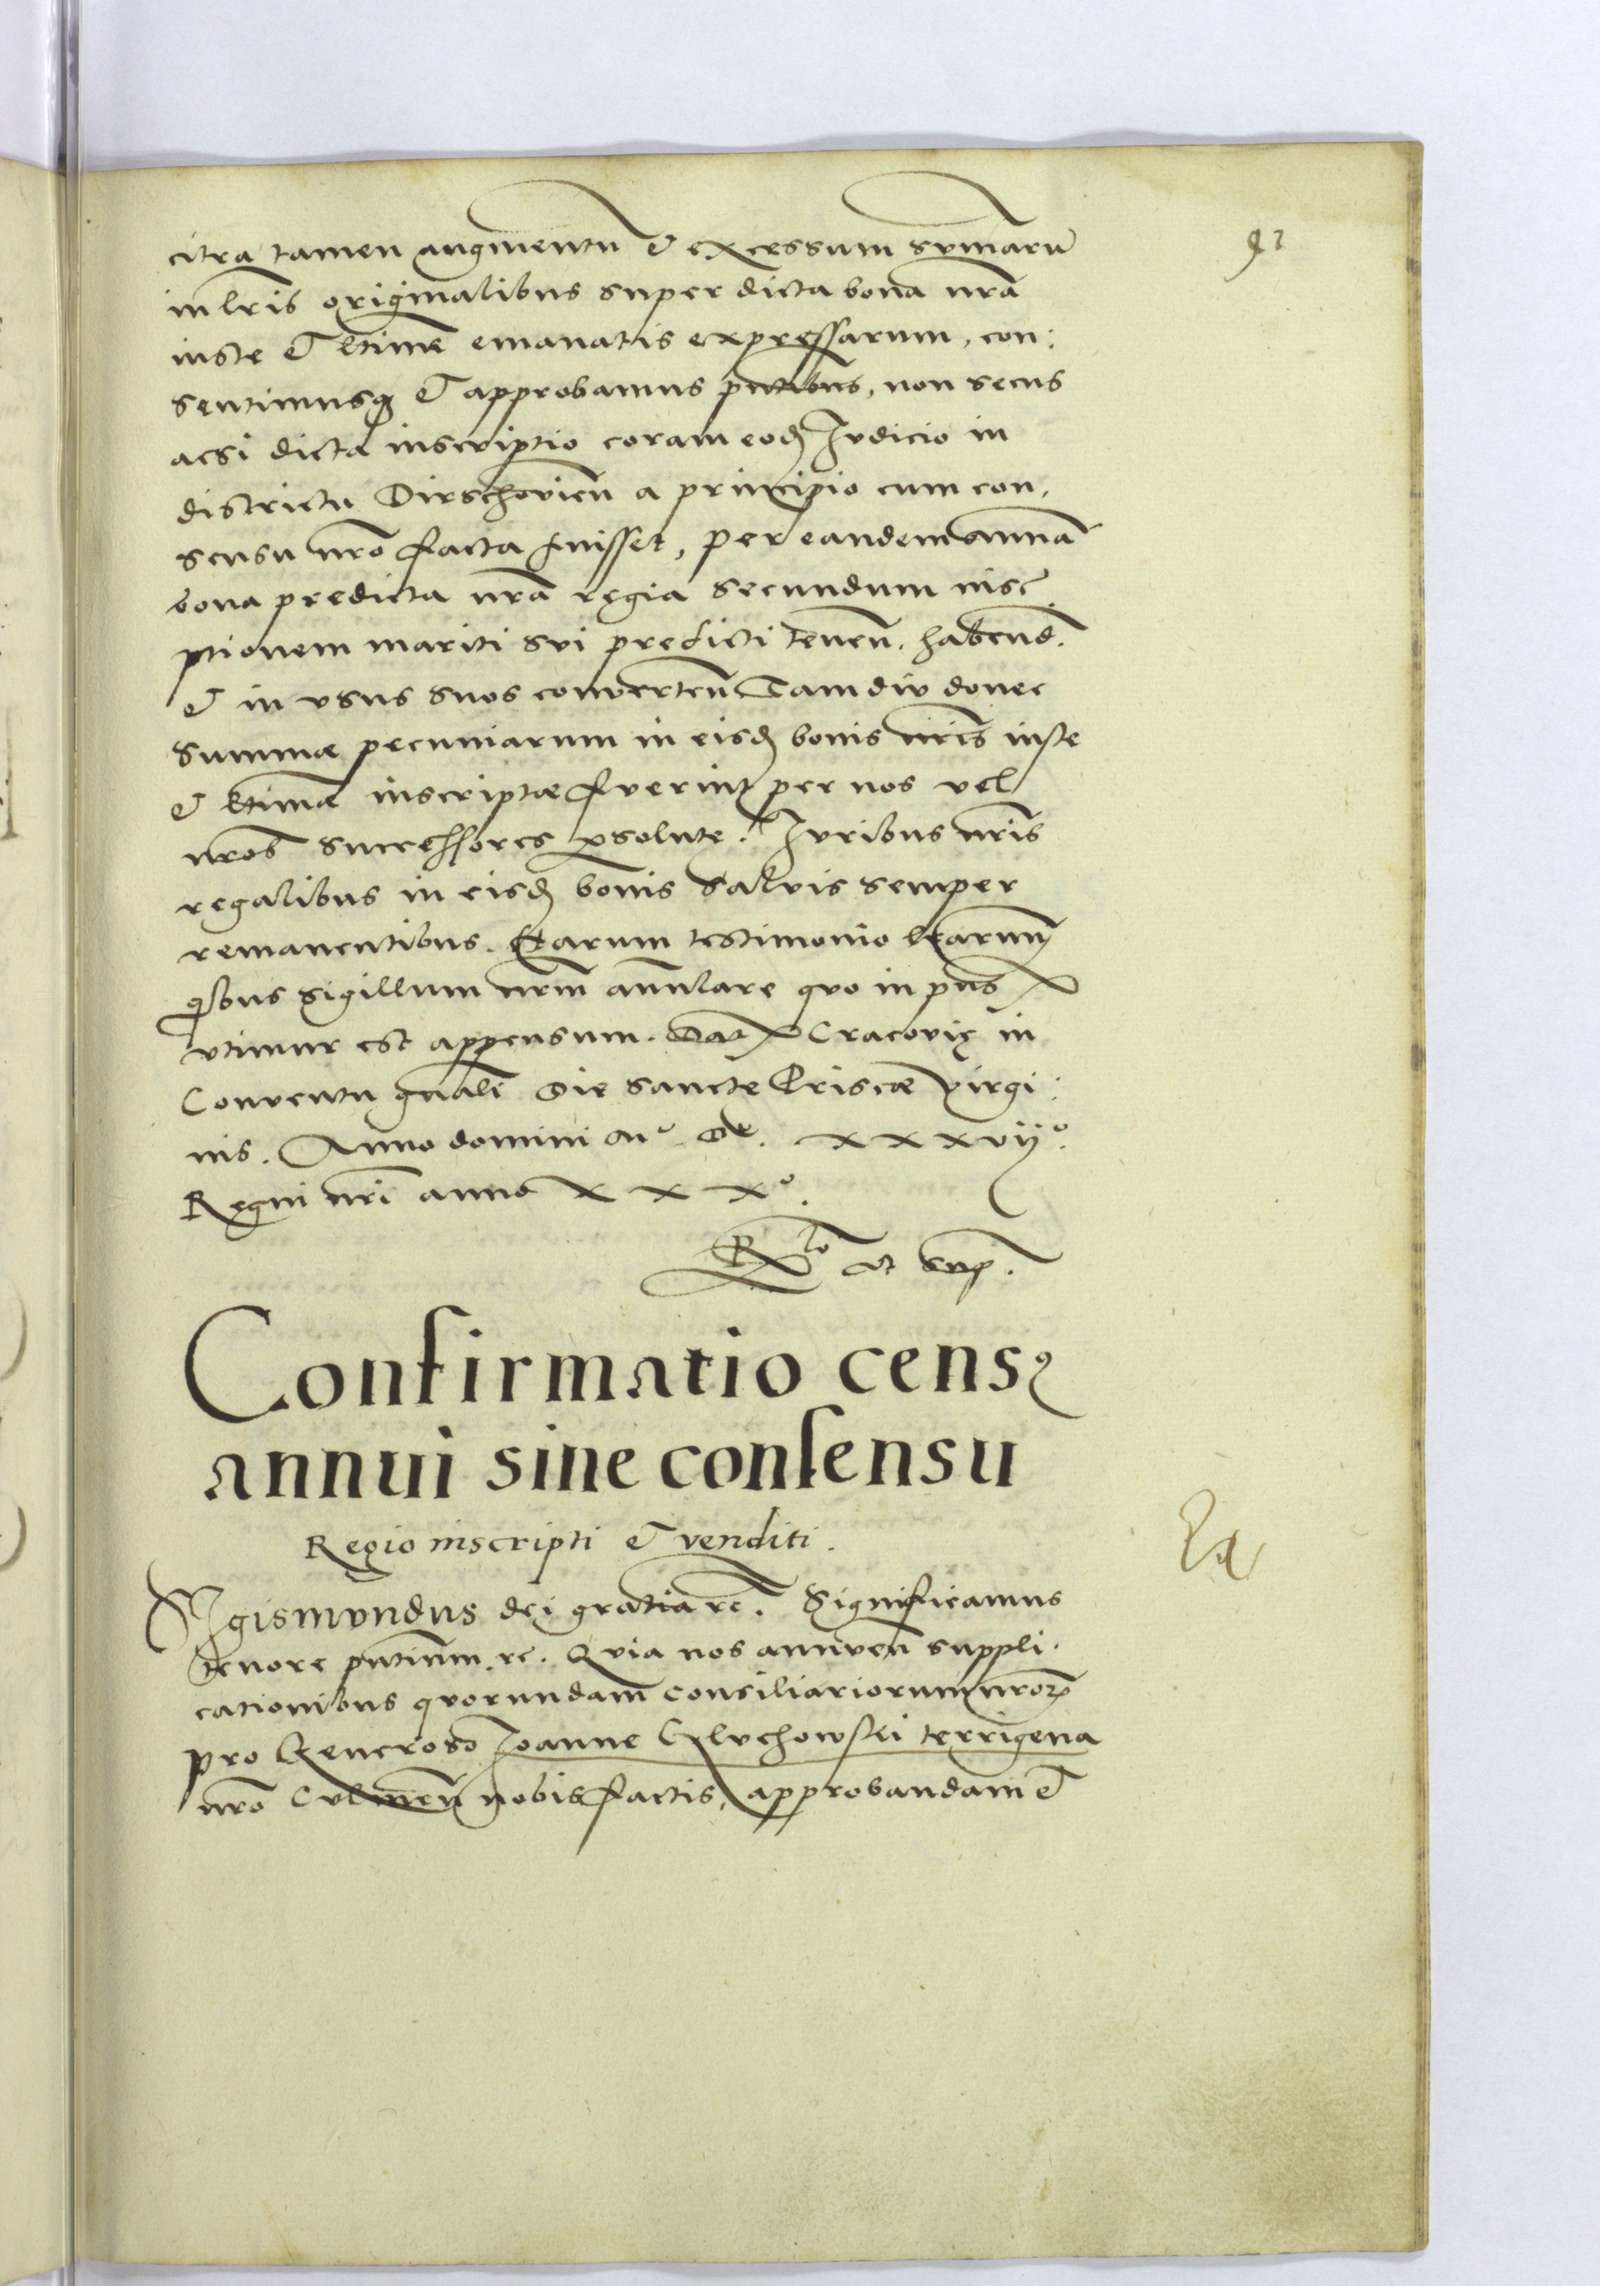 92
citra tamen augmentu̅ et excessum summaru̅
in l̅ris originalibus super dicta bona nr̅a
iuste et l̅time emanatis expressarum, con:
sentimusq; et approbamus pn̅tibus, non secus
acsi dicta inscriptio coram eod̅ Iudicio in
districtu Dirschovien̅ a principio cum con,
sensu nr̅o facta fuisset, per eandem Anna̅
bona predicta nr̅a regia secundum inscr̅
ptionem mariti sui predicti tenen̅. habend̅.
et in usus suos converten̅ Tamdiu donec
summæ pecuniarum in eisd̅ bonis nr̅is iuste
et l̅time inscriptæ fuerint per nos vel
nr̅os successores ꝑsolute. Iuribus nr̅is
regalibus in eisd̅ bonis salvis semper
remanentibus. Harum testimonio l̅rarum
q̅bus sigillum nr̅m an̅ulare quo in pn̅s
utimur est appensum. Dat Cracovię in
Conventu gn̅ali Die sancte Priscæ virgi:
nis. Anno domini Mº Dº. xxxvijº.
Regni nr̅i anno xxxº.
Rº ut sup̅.
Confirmatio censꝰ
annui sine consensu
Regio inscripti et venditi.
SIgismundus dei gratia rc̅. Significamus
tenore pn̅tium. rc. Quia nos annuen̅ suppli.
cationibus quorundam consiliariorum nr̅orꝝ
pro Generoso Joanne Gluchowski terrigena
nr̅o Culmen̅ nobis factis, approbandam et